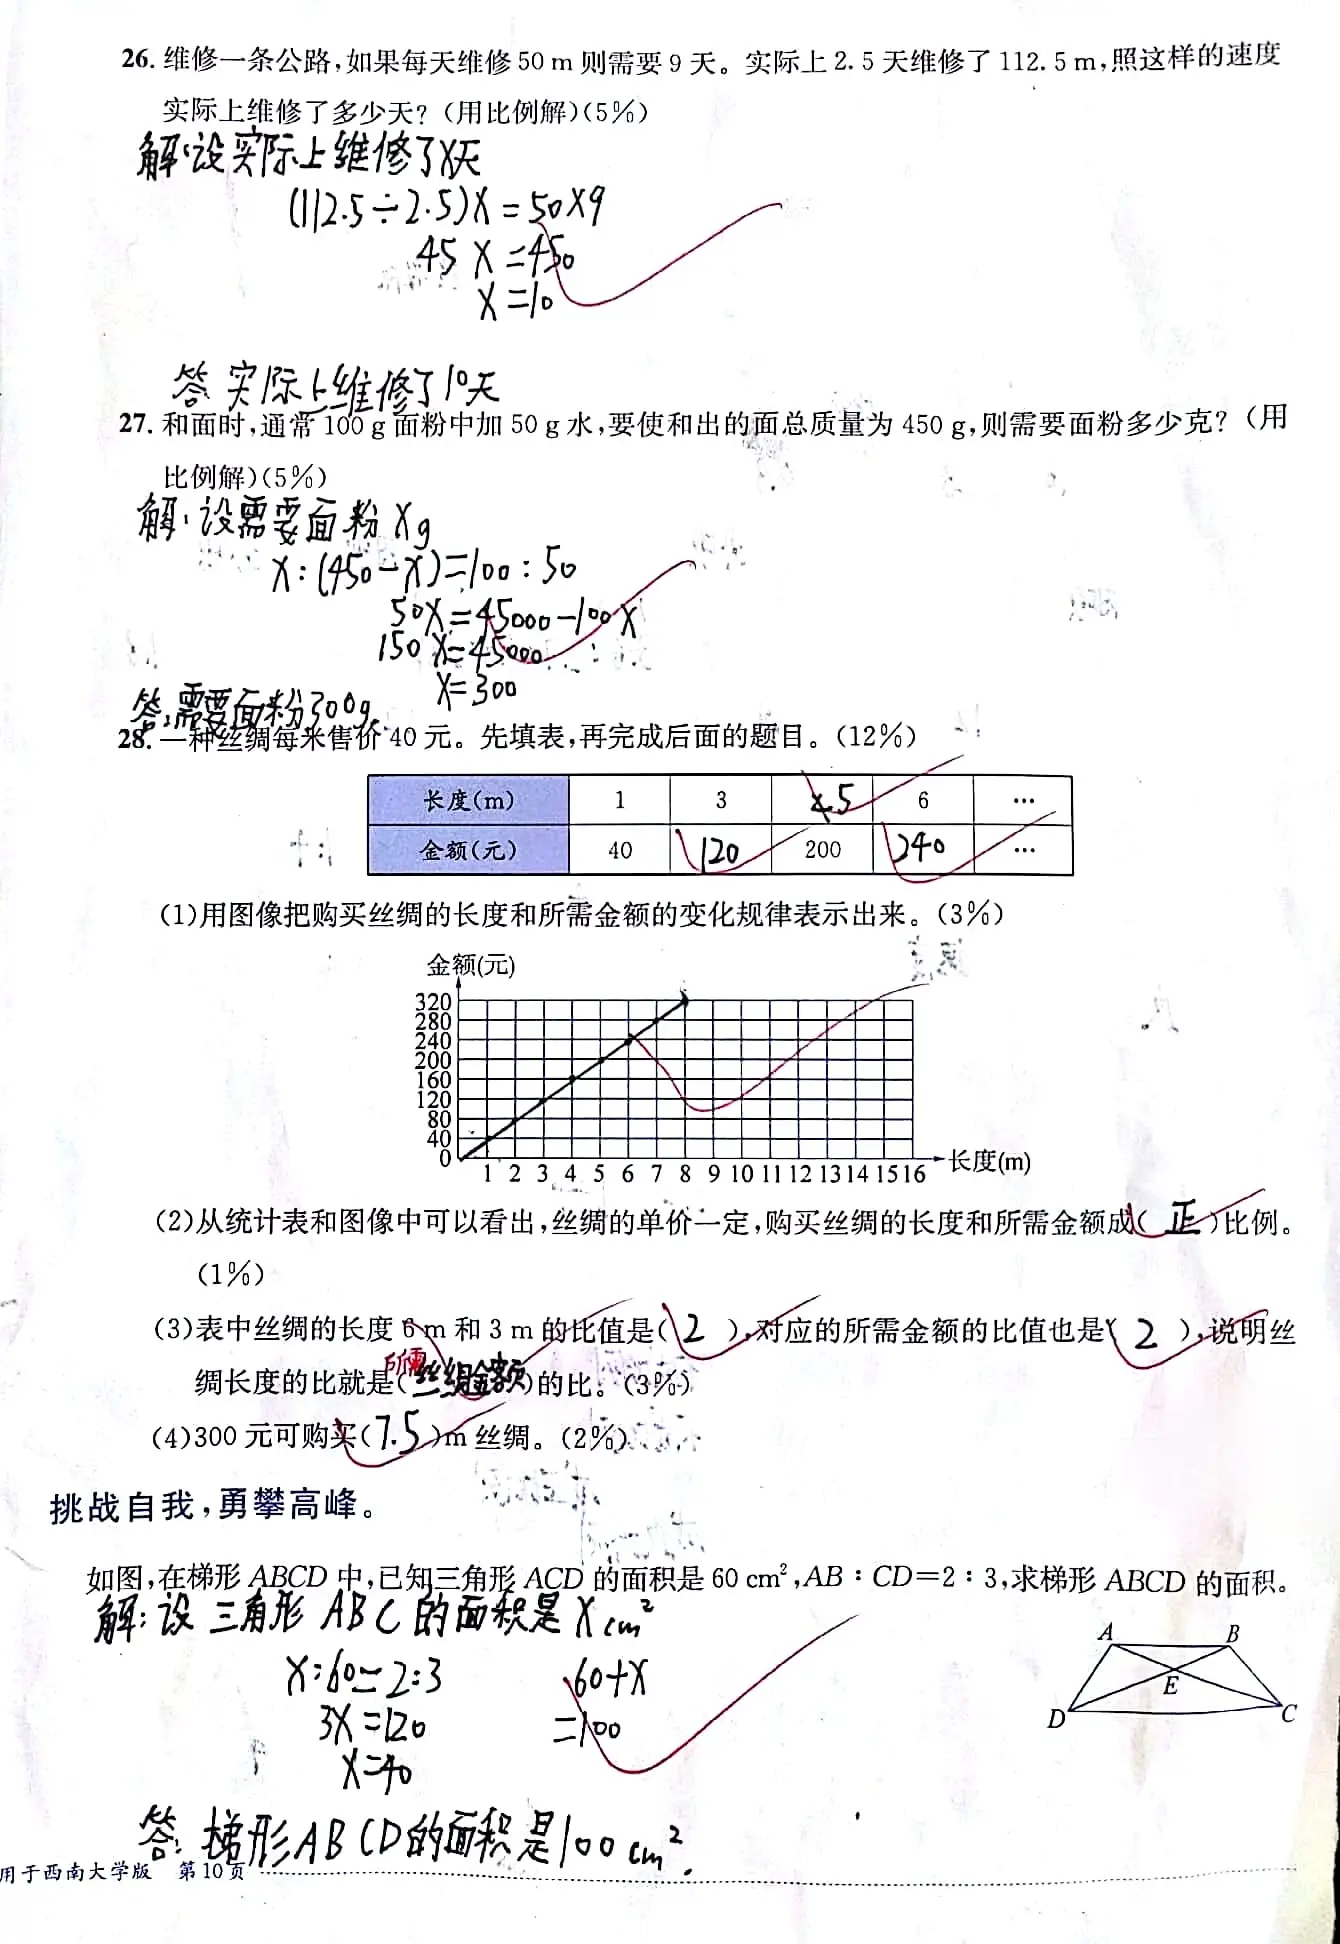 26. 维修一条公路,如果每天维修 50 m 则需要 9 天。实际上 2.5 天维修了 112.5 m,照这样的速度
实际上维修了多少天?(用比例解)(5%)
解:设实际上维修了X天
(112.5÷2.5)X=50X9
45X=450
X=10
答 实际上维修了10天
27. 和面时,通常 100 g 面粉中加 50 g 水,要使和出的面总质量为 450 g,则需要面粉多少克?(用
比例解)(5%)
解:设需要面粉Xg
X:(450-X)=100:50
50X=45000-100X
150X=45000
X=300
答:需要面粉300g.
28. 一种丝绸每米售价 40 元。先填表,再完成后面的题目。(12%)
长度(m) 1 3 5 6 …
金额(元) 40 120 200 240 …
(1)用图像把购买丝绸的长度和所需金额的变化规律表示出来。(3%)
金额(元)
320
280
240
200
160
120
80
40
0
1 2 3 4 5 6 7 8 9 10 11 12 13 14 15 16 长度(m)
(2)从统计表和图像中可以看出,丝绸的单价一定,购买丝绸的长度和所需金额成( 正 )比例。
(1%)
(3)表中丝绸的长度 6 m 和 3 m 的比值是( 2 ),对应的所需金额的比值也是( 2 ),说明丝
所需
绸长度的比就是(丝绸金额)的比。(3%)
(4)300 元可购买(7.5)m 丝绸。(2%)
挑战自我,勇攀高峰。
如图,在梯形 ABCD 中,已知三角形 ACD 的面积是 60 cm²,AB:CD=2:3,求梯形 ABCD 的面积。
解:设三角形ABC的面积是Xcm²
A B
X:60=2:3 60+X
E
3X=120 =100
D C
X=40
答:梯形ABCD的面积是100cm².
用于西南大学版 第10页